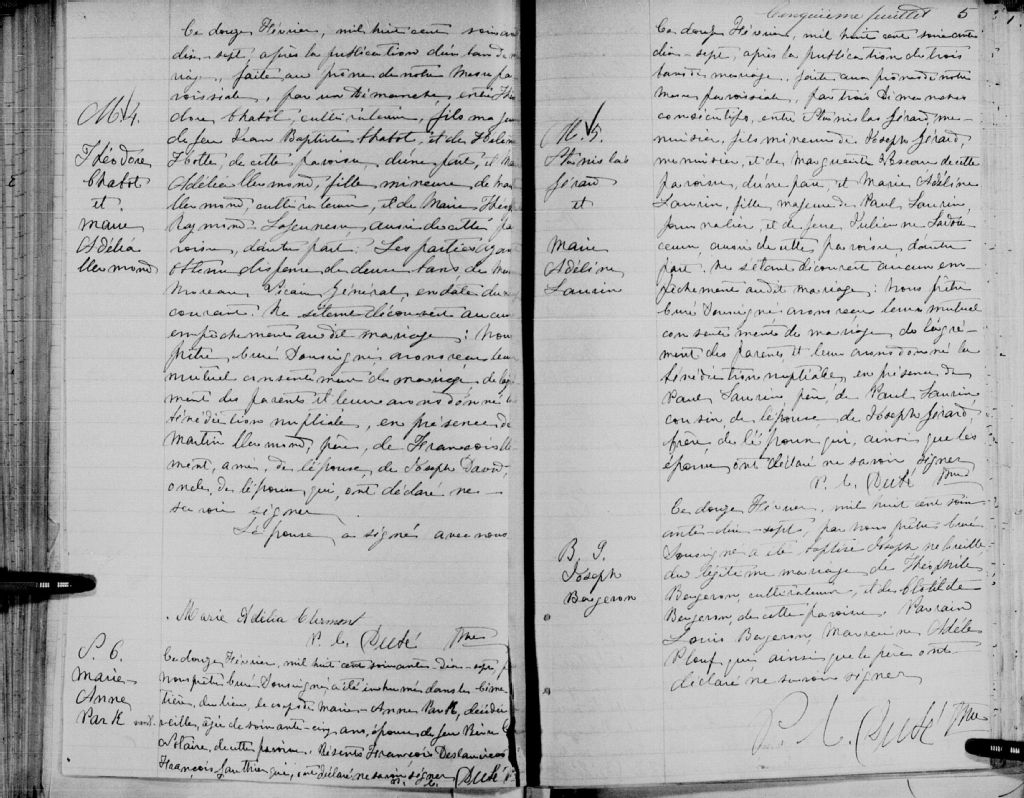 M. 4.
Théodore
Chabot
et
Marie
Adélia
Clermond
Ce douze Février, mil huit cent soixante
dix-sept, après la publication d'un ban de ma
riage, faite au prône de notre Messe pa
roissiale, par un Dimanche, entre Théo
dore Chabot, cultivateur, fils majeur
de feu Jean Baptiste Chabot, et de
de cette paroisse, d'une part, et Marie
Adélia Clermond, fille mineure de Martin
Clermond, cultivateur, et de Marie
Raymond Lajeunesse aussi de cette pa
roisse, d'autre part. Les parties ayant
obtenu dispense de deux bans de
Moreau Vicaire Général, en date du
courant. Ne s'étant découvert aucun
empêchement au dit mariage; Nous
prêtre Curé Soussigné avons reçu leur
mutuel consentement de mariage de l'agré
ment des parents et leur avons donné la
bénédiction nuptiale, en présence de
Martin Clermond, père, de François
ami, de l'épouse, de Joseph David
oncle, de l'épouse, qui, ont déclaré ne
savoir signer
L'épouse a signé avec nous
Marie Adélia Clermont
P. L. Dubé Ptre
S. 6.
Marie-
Anne
Park
Ce douze Février, mil huit cent soixante dix-sept, par
nous prêtre Curé Soussigné a été inhumé dans le cime-
tière du lieu, le corps de Marie-Anne Park, décédée
âgée de soixante-cinq ans, épouse de feu
de cette paroisse. Présents François Deslauriers
François Gauthier qui, ont déclaré ne savoir signer
P. L. Dubé
Cinquième feuillet 5
M. 5.
Stanislas
Gérard
et
Marie
Adéline
Laurin
Ce douze Février, mil huit cent soixante
dix-sept, après la publication de trois
bans de mariage, faite aux prônes de notre
Messe paroissiale, par trois Dimanches
consécutifs, entre Stanislas Gérard, me-
nuisier, fils mineur de Joseph Gérard,
menuisier, et de Marguerite de cette
paroisse, d'une part, et Marie Adéline
Laurin, fille majeure de Paul Laurin,
journalier, et de feue Julienne Ladou
ceur aussi de cette paroisse d'autre
part. Ne s'étant découvert aucun em-
pêchement au dit mariage: Nous prêtre
Curé Soussigné avons reçu leur mutuel
consentement de mariage de l'agré-
ment des parents et leur avons donné la
bénédiction nuptiale, en présence de
Paul Laurin, père, de Paul Laurin
cousin, de l'épouse, de Joseph Gérard,
frère de l'époux qui, ainsi que les
époux ont déclaré ne savoir signer
P. L. Dubé Ptre
B. 9.
Joseph
Bergeron
Ce douze Février, mil huit cent soix-
ante-dix-sept, par nous prêtre Curé
Soussigné a été baptisé Joseph né la veille
du légitime mariage de Théophile
Bergeron, cultivateur, et de Clotilde
Bergeron, de cette paroisse. Parrain
Louis Bergeron, Marraine Adèle
Plouf qui ainsi que le père ont
déclaré ne savoir signer
P. L. Dubé Ptre